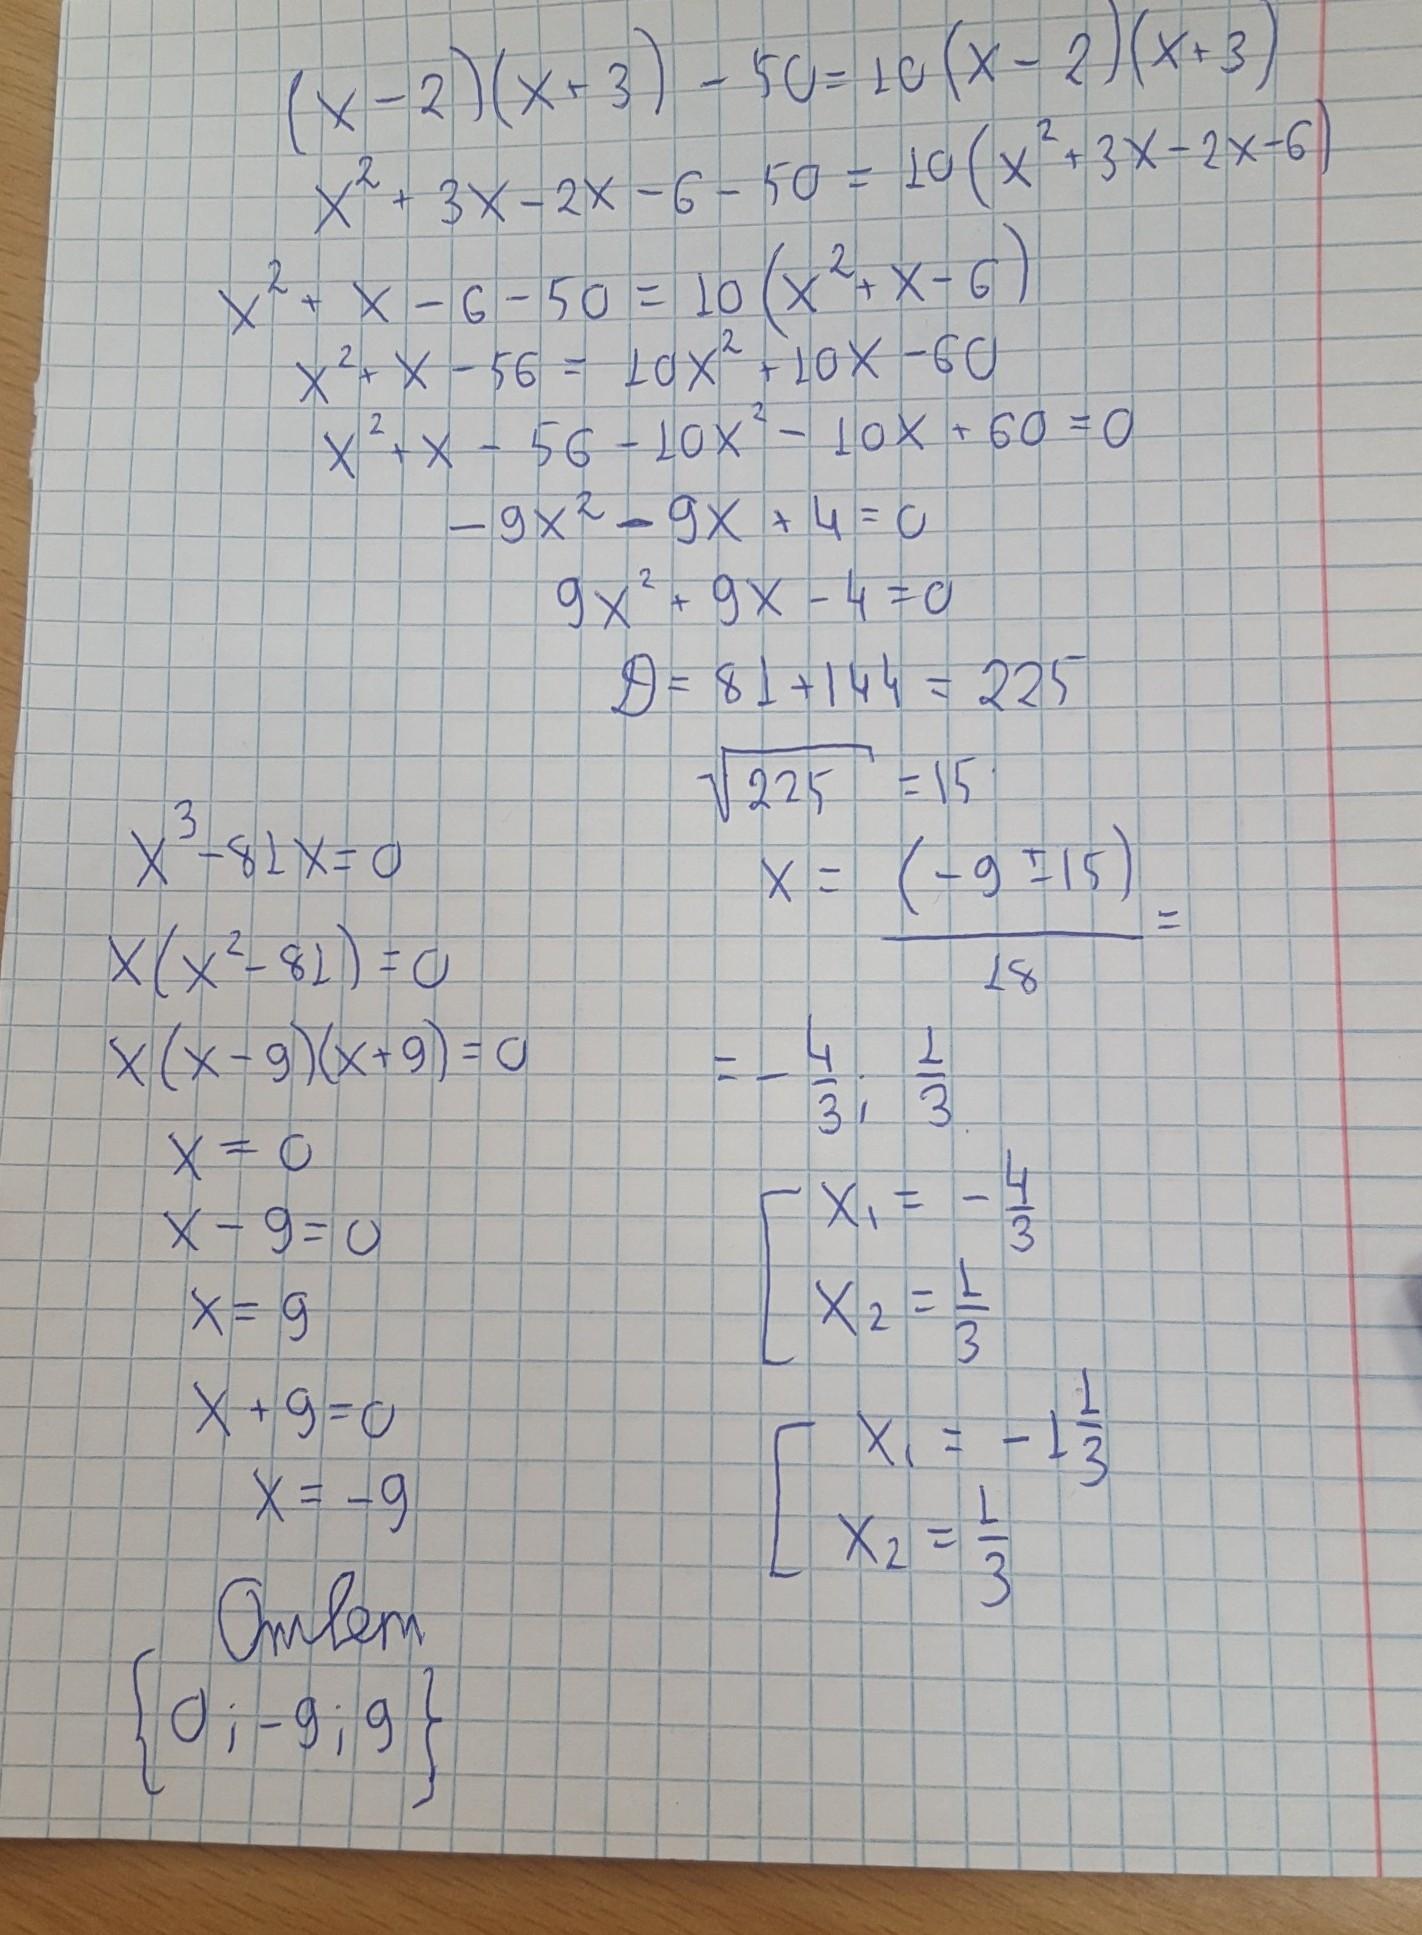 (x-2)(x+3) - 50 = 10(x-2)(x+3)
x² + 3x - 2x - 6 - 50 = 10(x² + 3x - 2x - 6)
x² + x - 6 - 50 = 10(x² + x - 6)
x² + x - 56 = 10x² + 10x - 60
x² + x - 56 - 10x² - 10x + 60 = 0
-9x² - 9x + 4 = 0
9x² + 9x - 4 = 0
D = 81 + 144 = 225
√225 = 15
x = (-9 ± 15)/18 =
= -4/3; 1/3
[ x₁ = -4/3
x₂ = 1/3
[ x₁ = -1 1/3
x₂ = 1/3
x³ - 81x = 0
x(x² - 81) = 0
x(x-9)(x+9) = 0
x = 0
x - 9 = 0
x = 9
x + 9 = 0
x = -9
Ответ
{0; -9; 9}